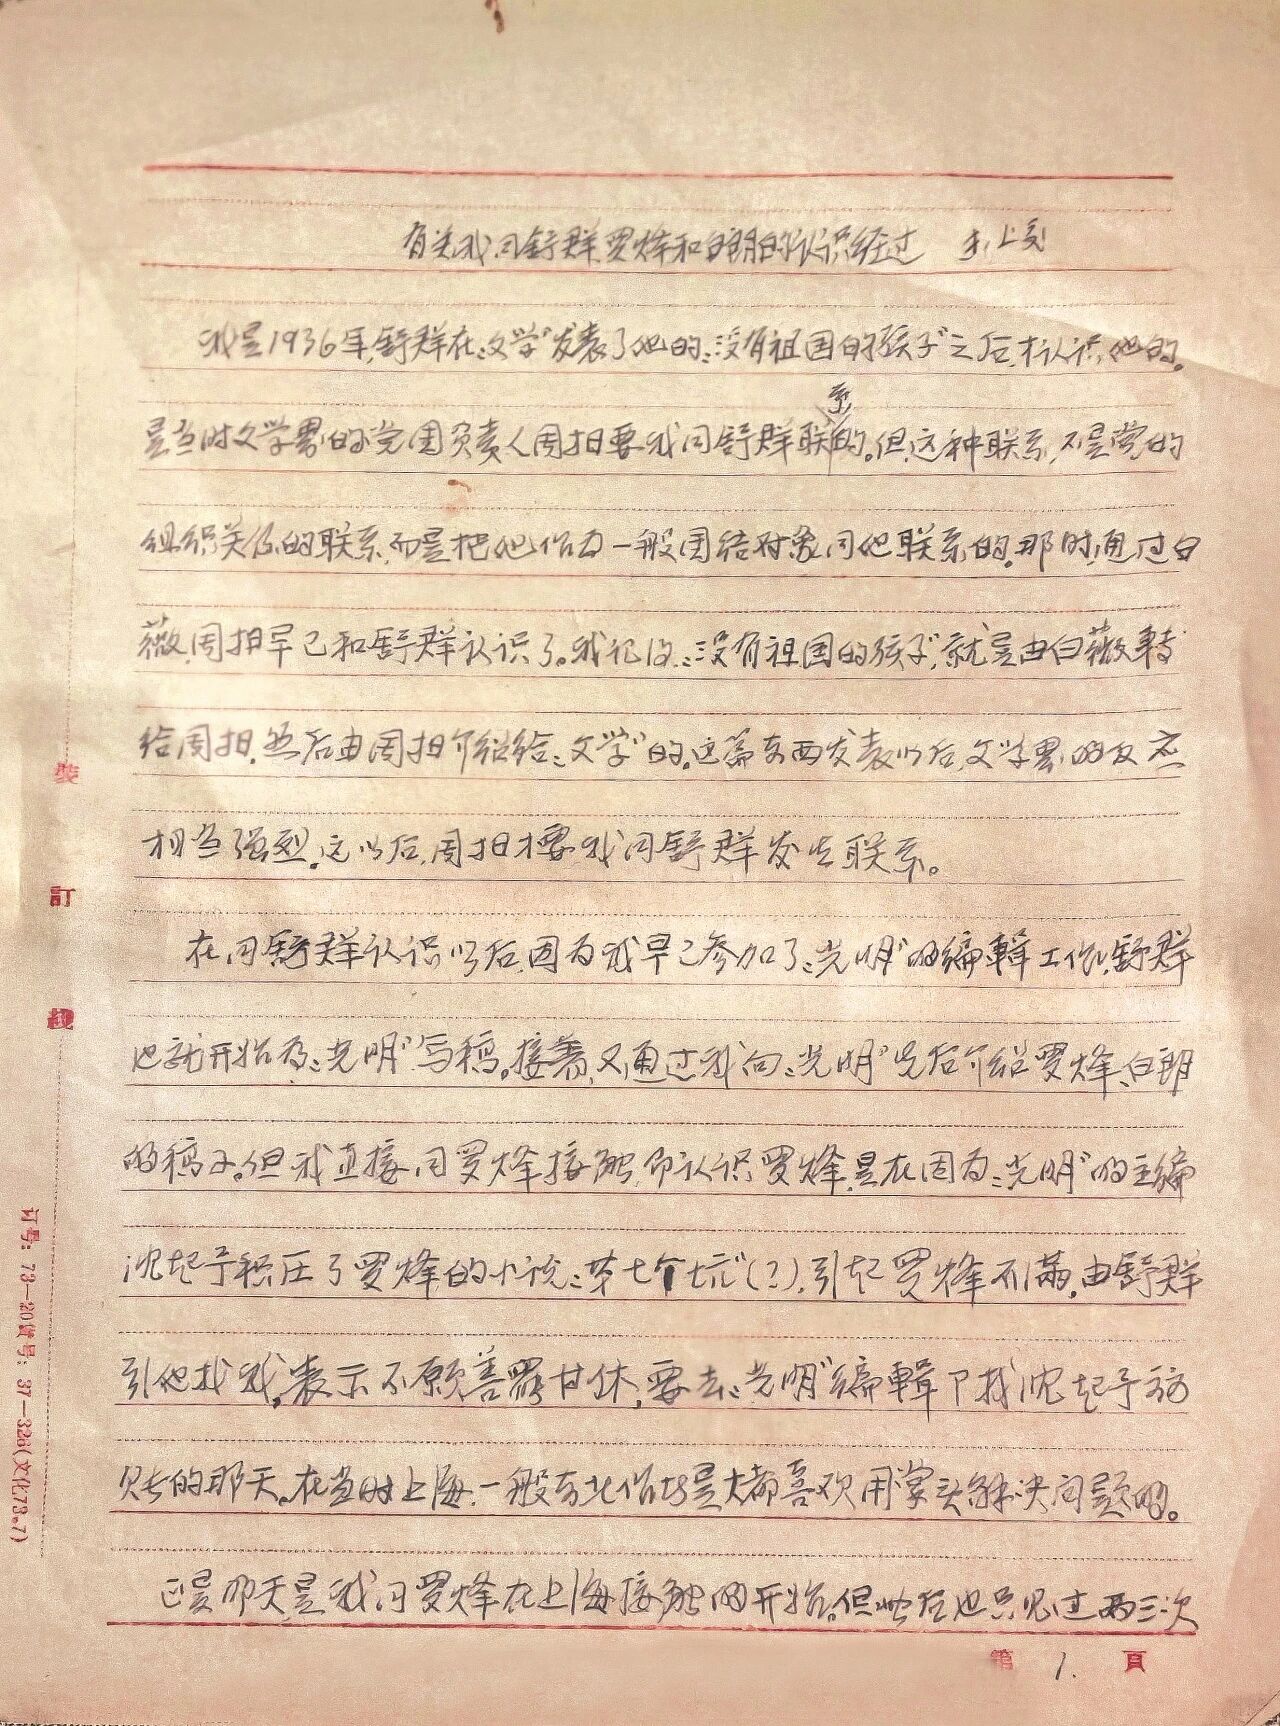 有关我同舒群、罗烽和白朗的认识经过
我是1936年，舒群在“文学”发表了他的“没有祖国的孩子”之后，才认识他的。
是当时文学界的党团负责人周扬要我同舒群联系的。但这种联系，不是党的
组织关系的联系，而是把他作为一般团结对象同他联系的。那时，通过白
薇，周扬早已和舒群认识了。我记得“没有祖国的孩子”，就是由白薇转
给周扬，然后由周扬介绍给“文学”的。这篇东西发表以后，文学界的反应
相当强烈。这以后，周扬才要我同舒群发生联系。
在同舒群认识以后，因为我早已参加了“光明”的编辑工作，舒群
也就开始为“光明”写稿。接着，又通过我向“光明”先后介绍罗烽、白朗
的稿子。但我直接同罗烽接触，即认识罗烽，是在因为“光明”的主编
沈起予积压了罗烽的小说“第七个坑”（？），引起罗烽不满，由舒群
引他找我，表示不愿善罢甘休，要去“光明”编辑部找沈起予访
的那天。在当时上海，一般东北作者是大都喜欢用拳头解决问题的。
正是那天是我同罗烽在上海接触的开始。但此后也只见过两三次
装
訂
線
订号：73—20 货号：37—326（文化73.7）
第 1. 頁